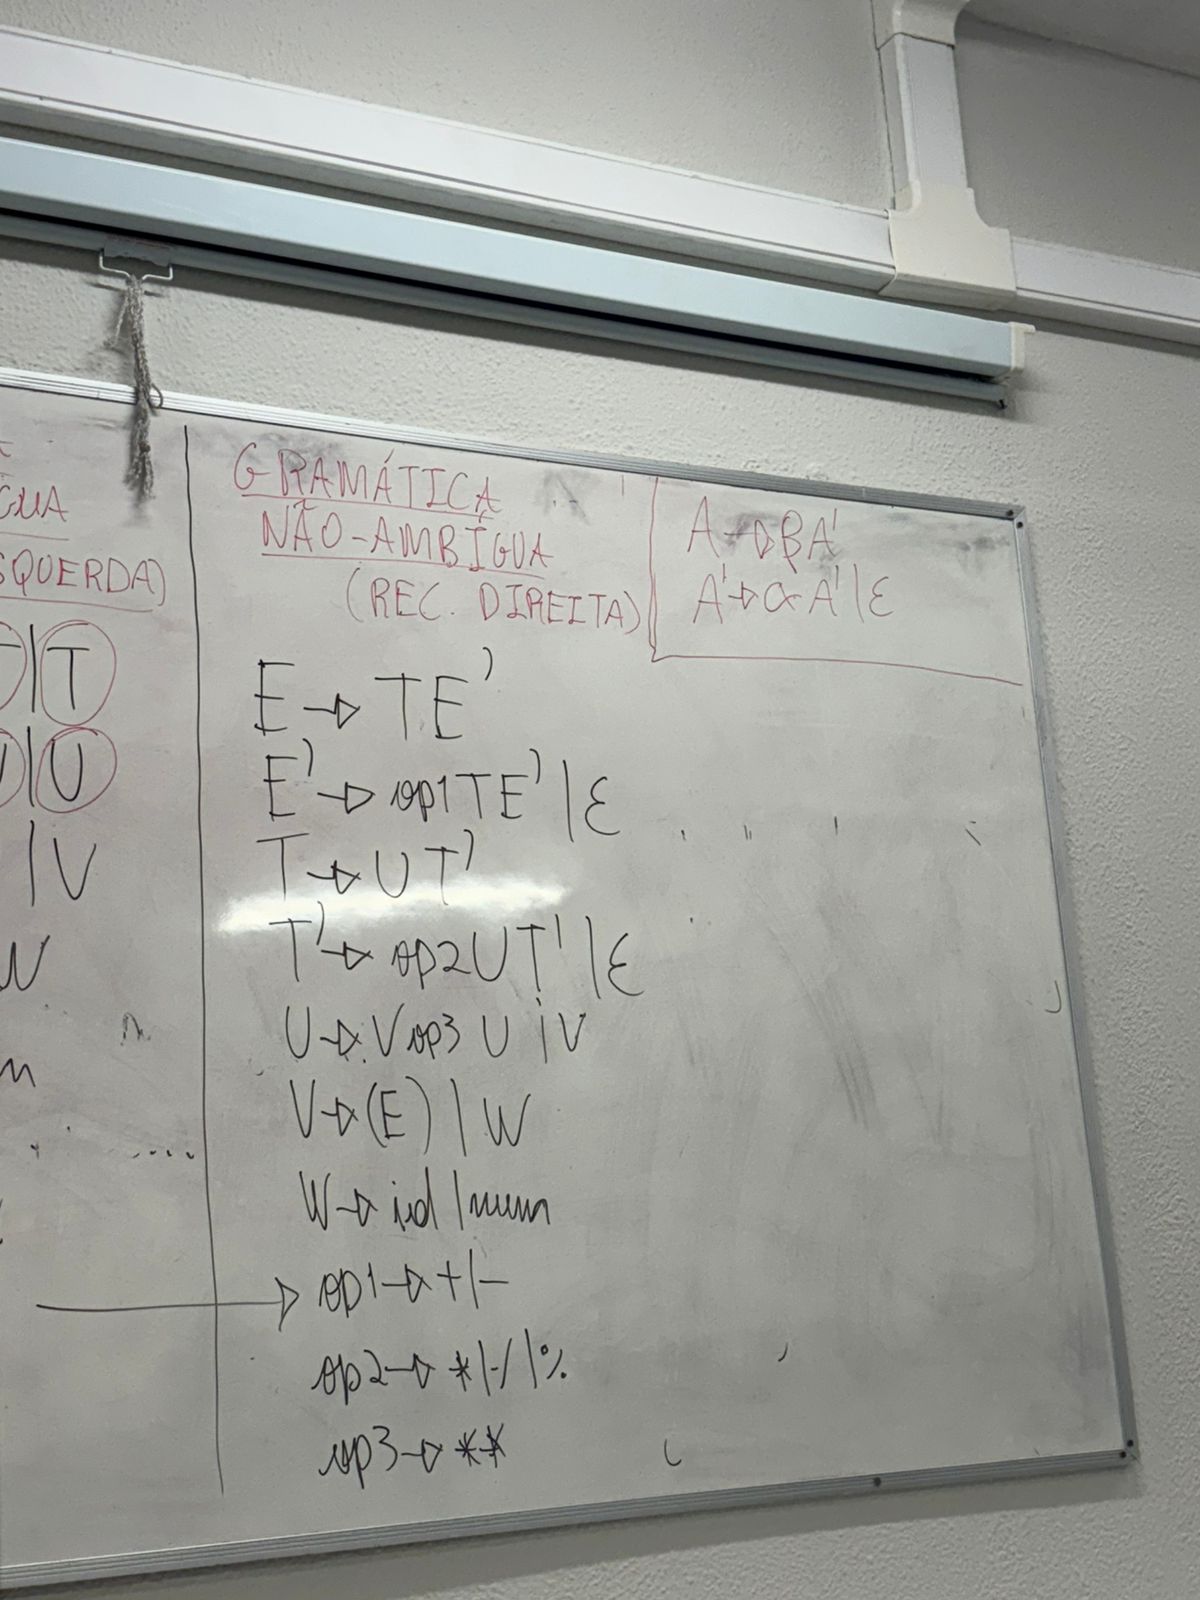 GUA
SQUERDA)
|T
|U
|V
W
GRAMÁTICA
NÃO-AMBÍGUA
(REC. DIREITA)
A → βA'
A' → αA' | ε
E → TE'
E' → op1TE' | ε
T → UT'
T' → op2UT' | ε
U → Vop3 U | V
V → (E) | W
W → id | num
op1 → + | -
op2 → * | / | %
op3 → **